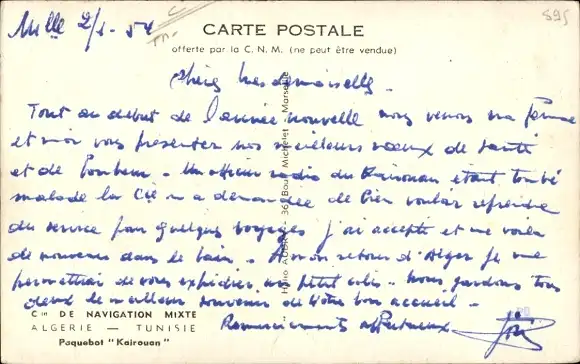 Mlle 2/1-54
595
CARTE POSTALE
offerte par la C. N. M. (ne peut être vendue)
Chères Mesdemoiselles.
Tout au début de l'année nouvelle nous venons ma femme
et moi vous présenter nos meilleurs vœux de santé
et de bonheur - Un officier radio du Kairouan étant tombé
malade la Cie m'a demandé de bien vouloir reprendre
du service pour quelques voyages j'ai accepté et me voilà
de nouveau dans le bain - A mon retour d'Alger je me
permettrai de vous expédier un petit colis - Nous gardons tous
deux le meilleur souvenir de votre bon accueil -
Remerciements affectueux
Cie DE NAVIGATION MIXTE
ALGERIE — TUNISIE
Paquebot "Kairouan"
Michelet - Marseille